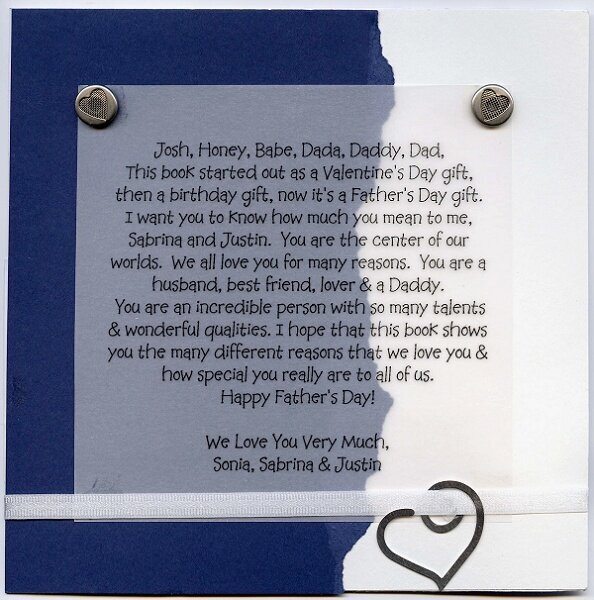 Josh, Honey, Babe, Dada, Daddy, Dad,
This book started out as a Valentine's Day gift,
then a birthday gift, now it's a Father's Day gift.
I want you to know how much you mean to me,
Sabrina and Justin. You are the center of our
worlds. We all love you for many reasons. You are a
husband, best friend, lover & a Daddy.
You are an incredible person with so many talents
& wonderful qualities. I hope that this book shows
you the many different reasons that we love you &
how special you really are to all of us.
Happy Father's Day!
We Love You Very Much,
Sonia, Sabrina & Justin